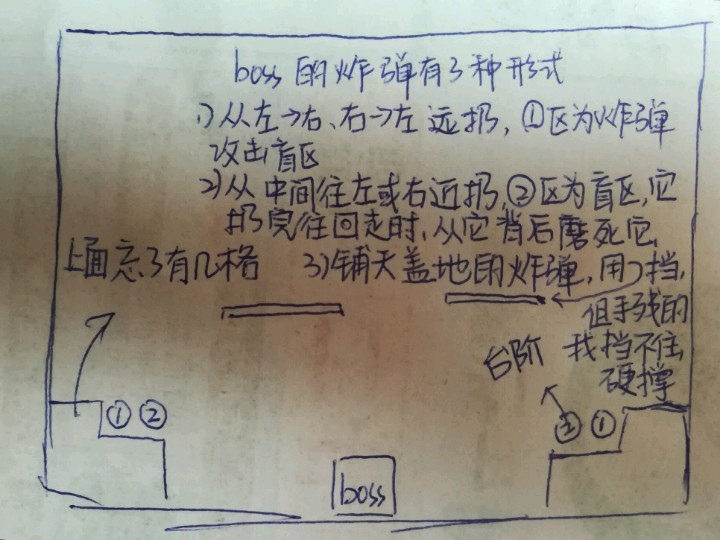 boss的炸弹有3种形式
1)从左→右、右→左远扔,①区为炸弹
攻击盲区
2)从中间往左或右近扔,②区为盲区,它
扔完往回走时,从它背后磨死它,
上面忘了有几格
3)铺天盖地的炸弹,用つ挡,
但手残的
我挡不住,
硬撑
台阶
① ②
② ①
boss